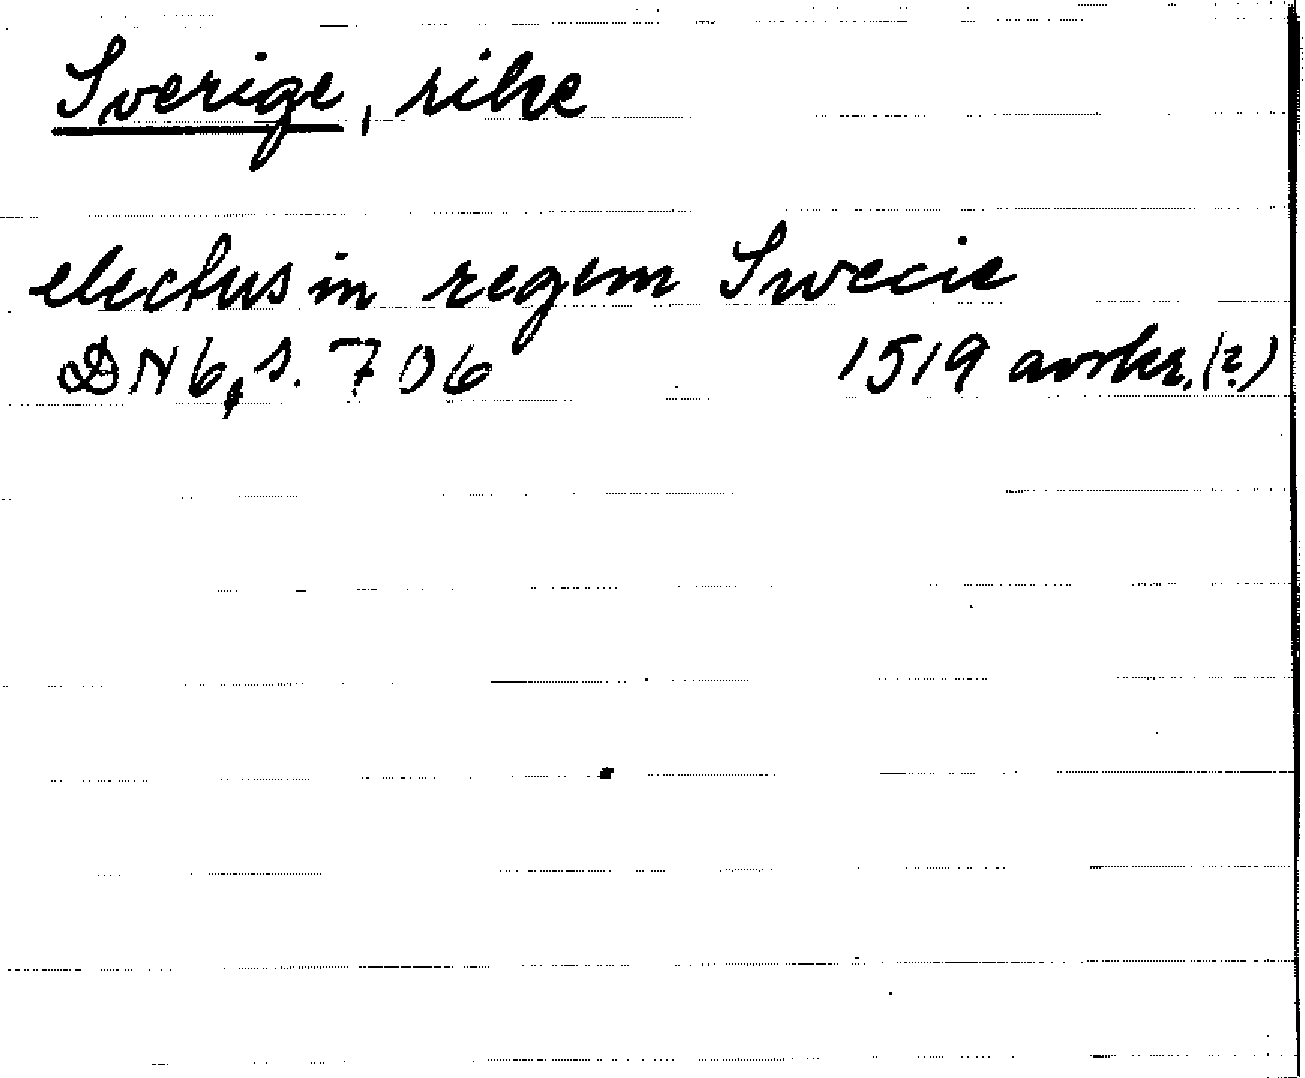 Sverige, rike
electus in regem Swecie
DN 6, s. 706 1519 avskr. (?)